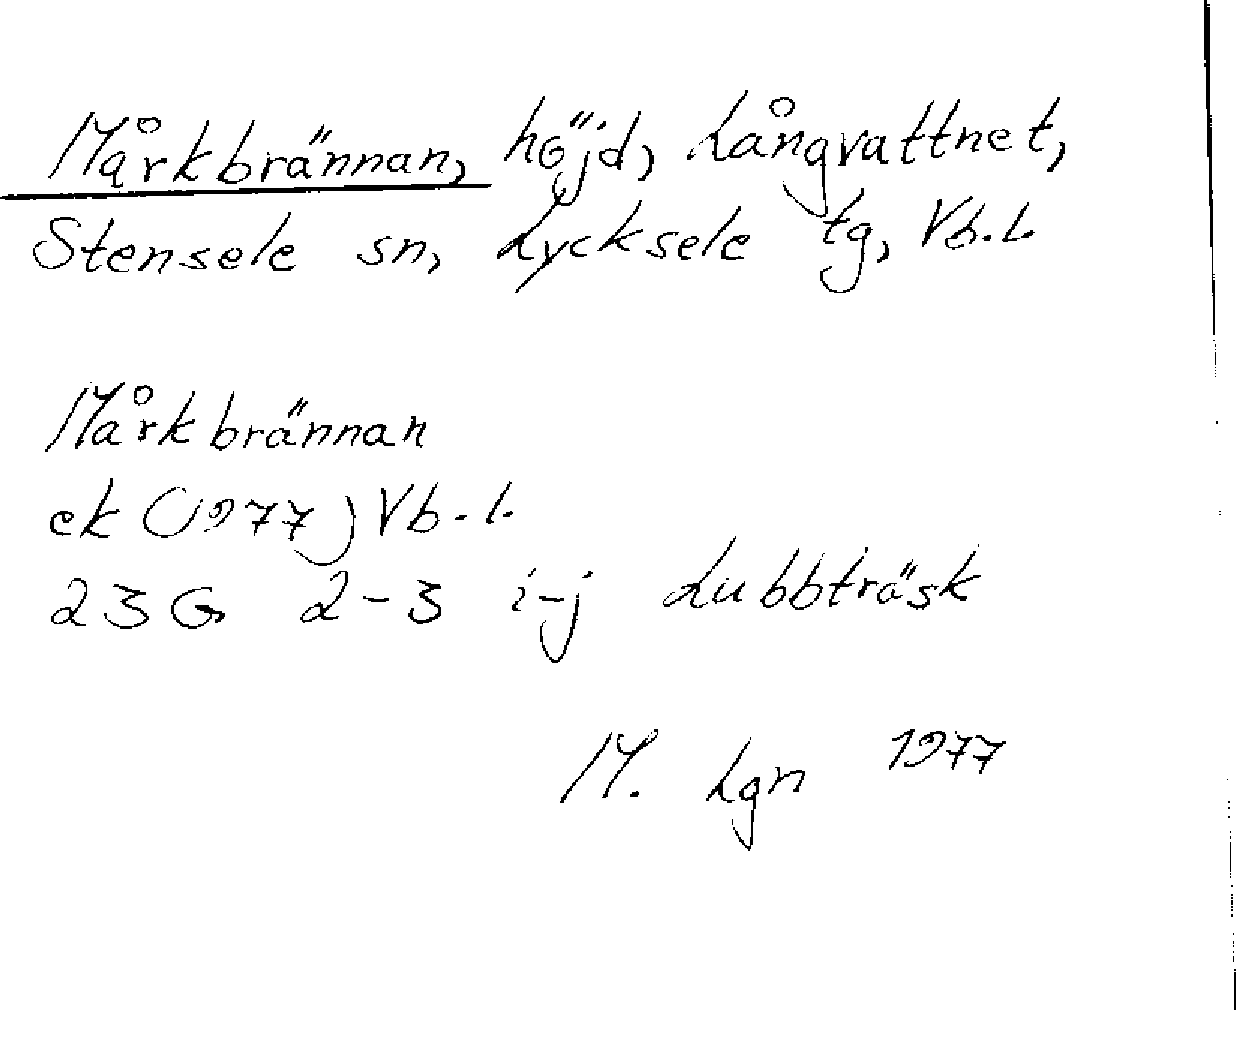 Mårkbrännan, höjd, Långvattnet,
Stensele sn, Lycksele tg, Vb.l.
Mårkbrännan
ek (1977) Vb.l.
23 G 2-3 i-j Lubbträsk
M. Lgn 1977